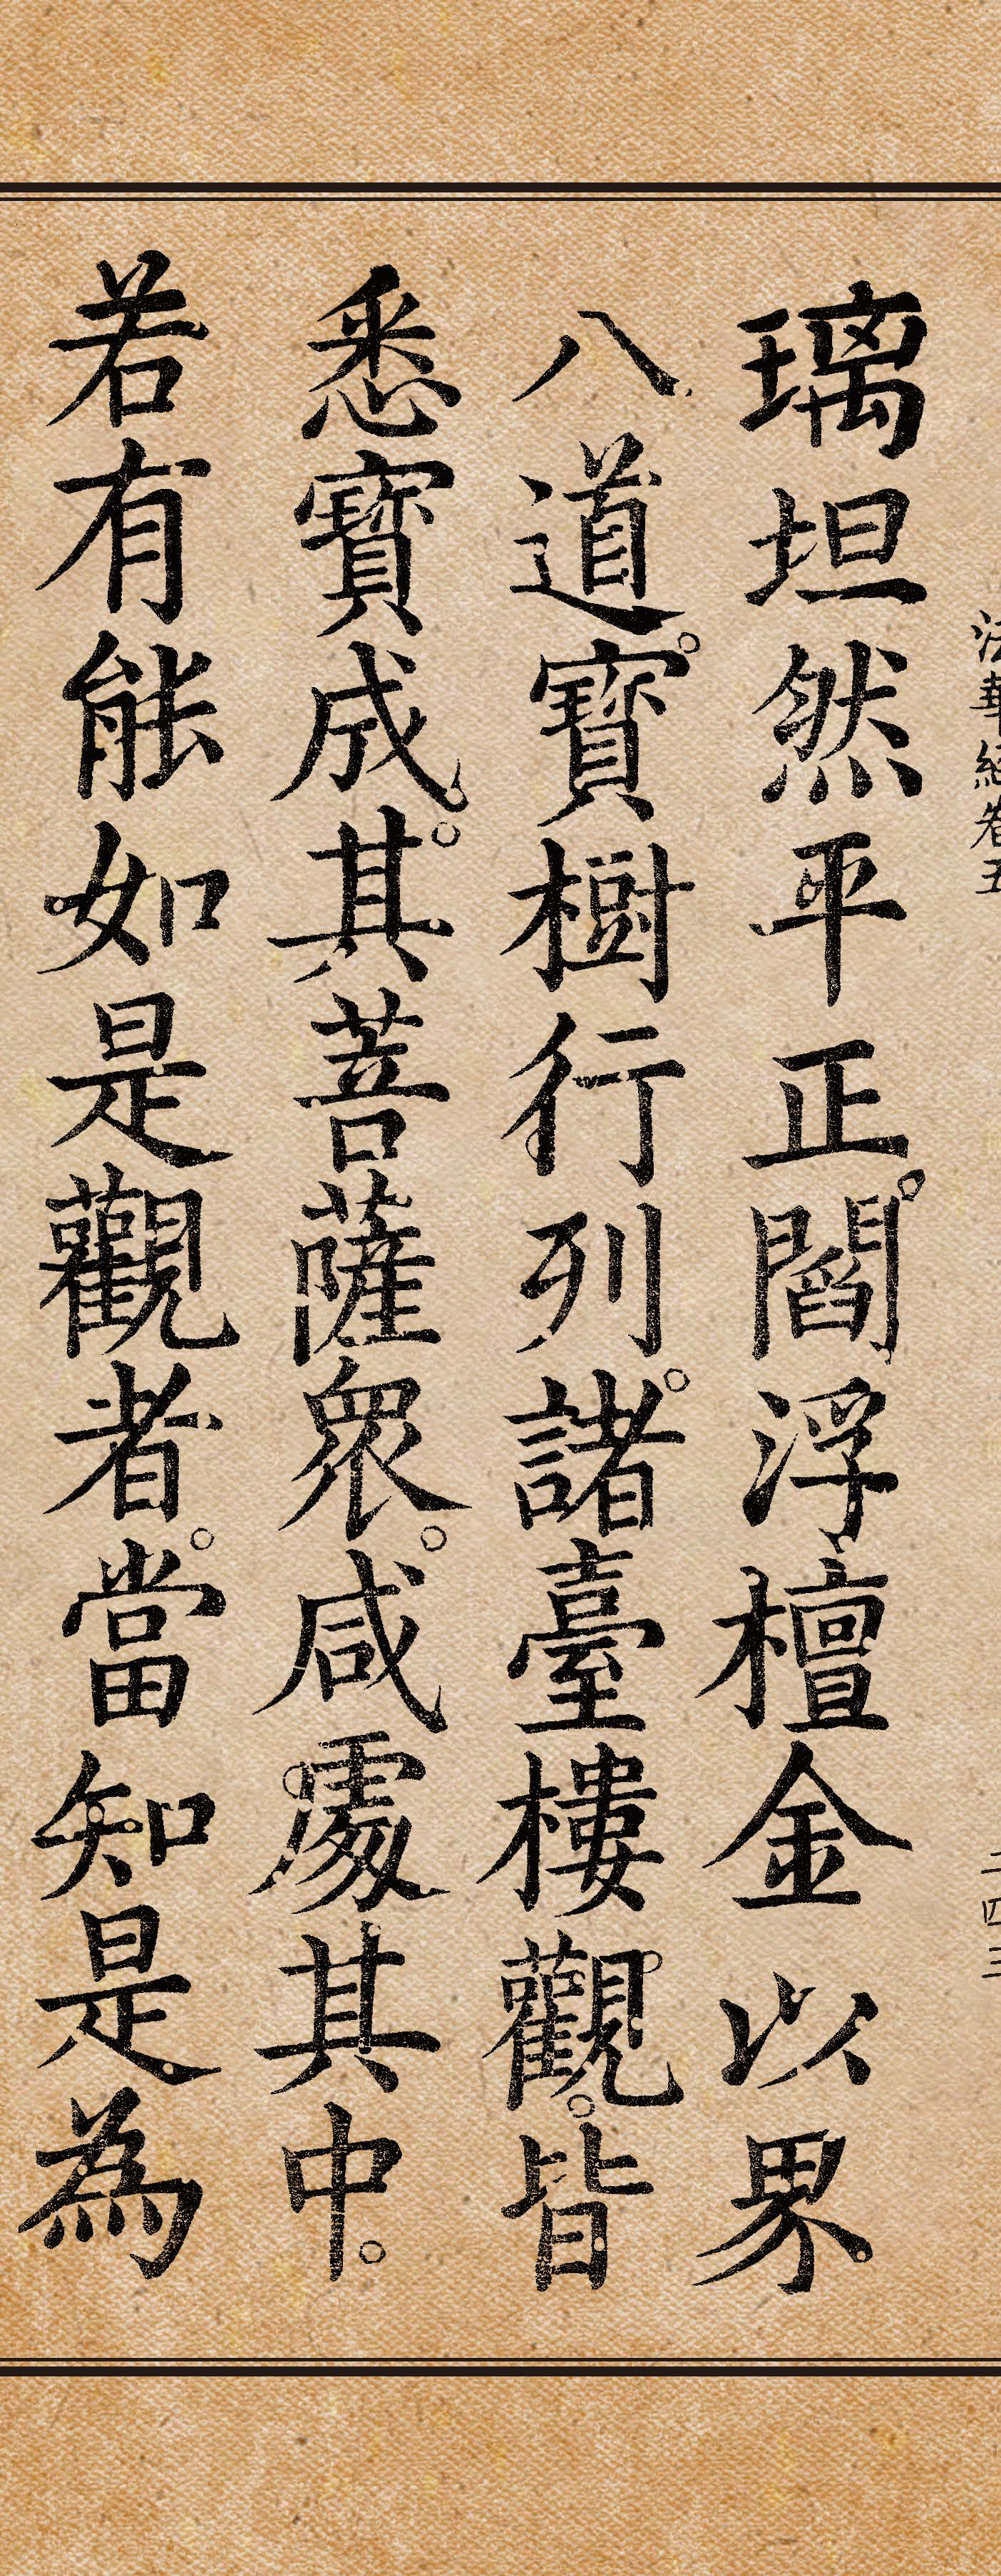 法華經卷五
二四三
璃坦然平正。閻浮檀金以界
八道。寶樹行列。諸臺樓觀。皆
悉寶成。其菩薩眾。咸處其中。
若有能如是觀者。當知是為